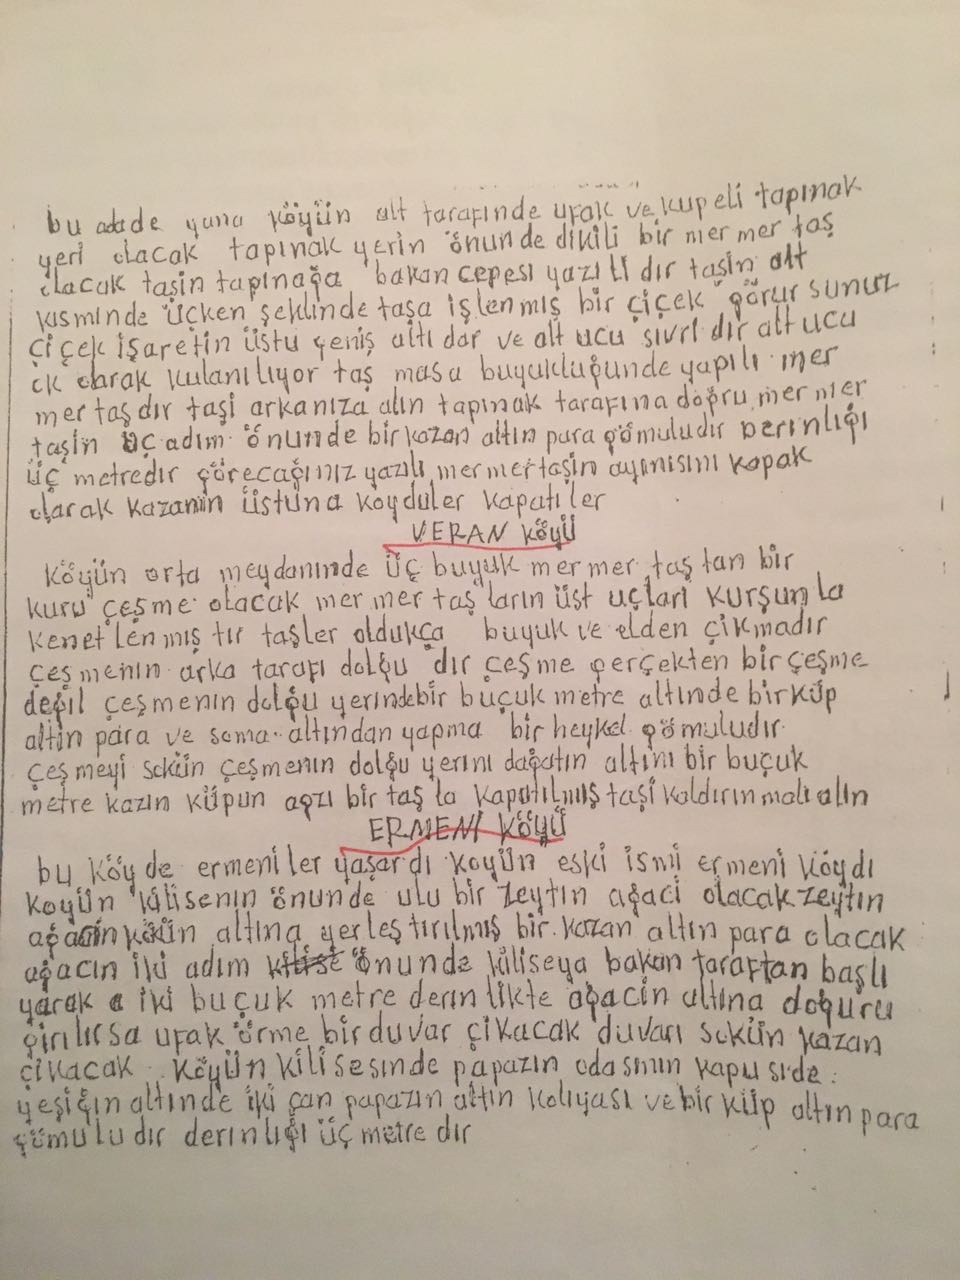 bu adade yuna köyün alt tarafınde ufak ve kupeli tapınak
yeri olacak tapınak yerin önunde dikili bir mer mer taş
olacak taşin tapınağa bakan cepesi yazıli dır taşin alt
kısminde üçken şeklinde taşa işlenmış bir çiçek görur sunuz
çiçek işaretin üstu geniş altı dar ve alt ucu sıvrı dır alt ucu
ok olarak kulanılıyor taş masa buyukluğunde yapılı mer
mer taşdır taşi arkanıza alın tapınak tarafına doğru mer mer
taşin üç adım önunde bir kazan altın para gömuludır derınlığı
üç metredır göreceğınız yazılı mermer taşin aynısını kapak
olarak kazanin üstuna koyduler kapatıler
VERAN köyü
köyün orta meydanınde üç buyuk mer mer taş tan bir
kuru çeşme olacak mer mer taş ların üst uçları kurşun la
kenet lenmış tır taşler oldukça buyuk ve elden çikmadır
çeşmenın arka tarafı dolğu dır çeşme gerçekten bir çeşme
değıl çeşmenın dolğu yerınde bir buçuk metre altınde bir küp
altin para ve soma altından yapma bir heykel gömuludır
çeşmeyi sokün çeşmenın dolğu yerını dağatın altını bir buçuk
metre kazın küpun ağzı bir taş la kapatılmış taşi kaldırın malı alın
ERMENİ köyü
bu köy de ermeniler yaşardı koyün eski ismi ermeni köydı
koyün kilisenın önunde ulu bir zeytın ağaci olacak zeytın
ağacin kökün altına yerleştırılmış bir kazan altın para olacak
ağacın iki adım önunde kiliseya bakan taraftan başlı
yarak iki buçuk metre derın likte ağacin altına doğuru
girılırsa ufak örme bir duvar çikacak duvarı sokün kazan
çıkacak köyün kilisesinde papazın odasının kapu sıde
yeşiğın altınde iki çan papazın altın kolıyası ve bir küp altın para
gömulu dır derınlığı üç metre dır